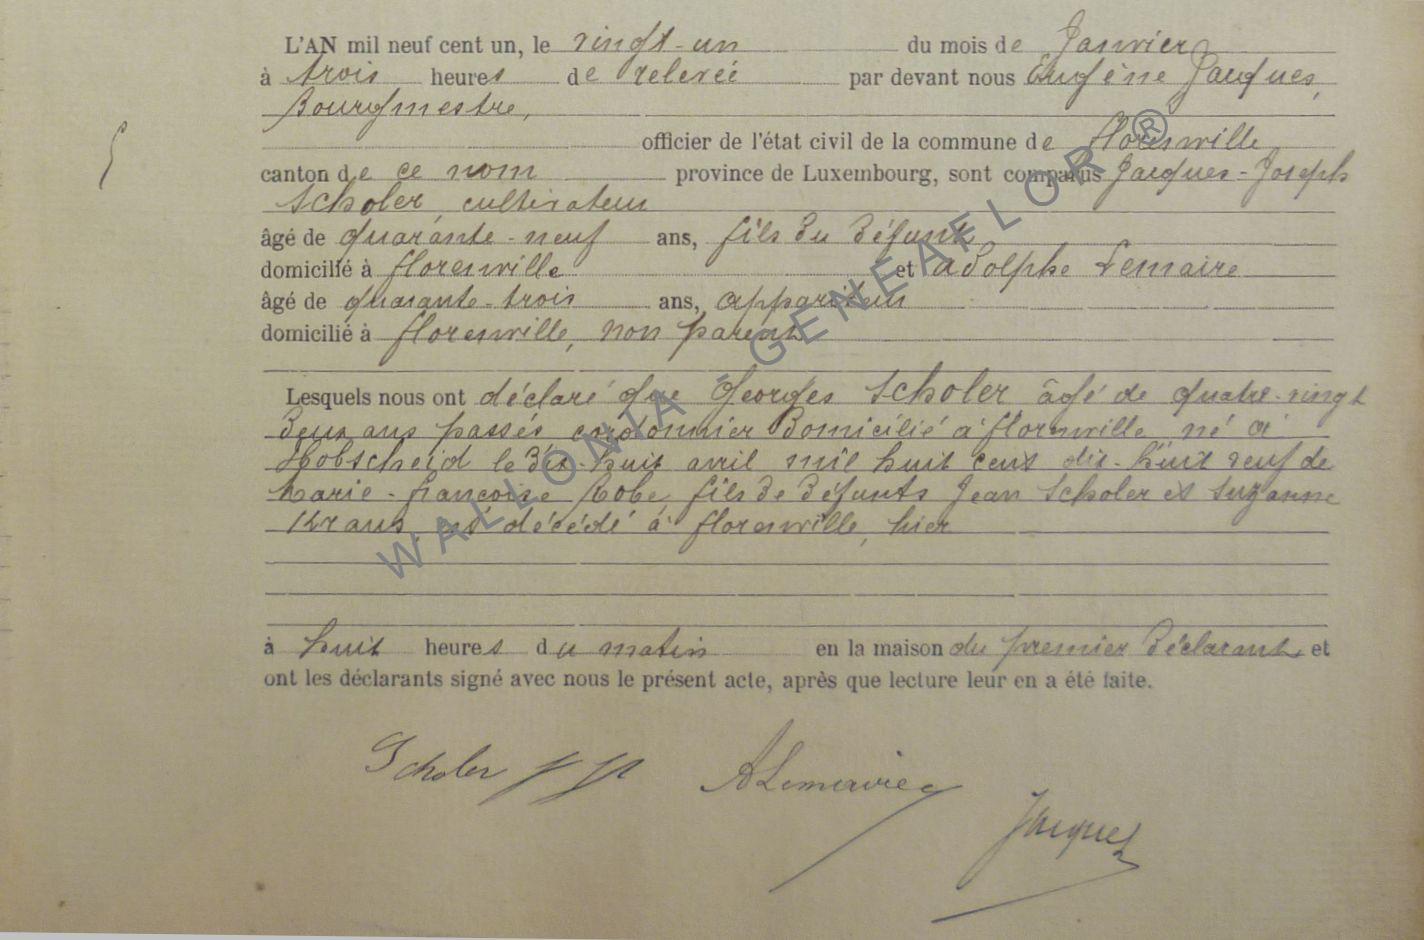 L'AN mil neuf cent un, le vingt-un du mois de Janvier
à trois heures de relevée par devant nous Eugène Jacques,
Bourgmestre,
officier de l'état civil de la commune de florenville
canton de ce nom province de Luxembourg, sont comparus Jacques-Joseph
Scholer, cultivateur
âgé de quarante-neuf ans, fils du défunt
domicilié à florenville et Adolphe Lemaire
âgé de quarante-trois ans, appariteur
domicilié à florenville, non parent
Lesquels nous ont déclaré que Georges Scholer âgé de quatre-vingt
deux ans passés cordonnier domicilié à florenville né à
Hobscheid le dix-huit avril mil huit cent dix-huit veuf de
Marie-françoise Robe, fils de défunts Jean Scholer et Suzanne
Kraus est décédé à florenville, hier
à huit heures du matin en la maison du premier déclarant et
ont les déclarants signé avec nous le présent acte, après que lecture leur en a été faite.
Scholer JJ ALemaire
Jacques
WALLONIA - GENEAFLOR ®